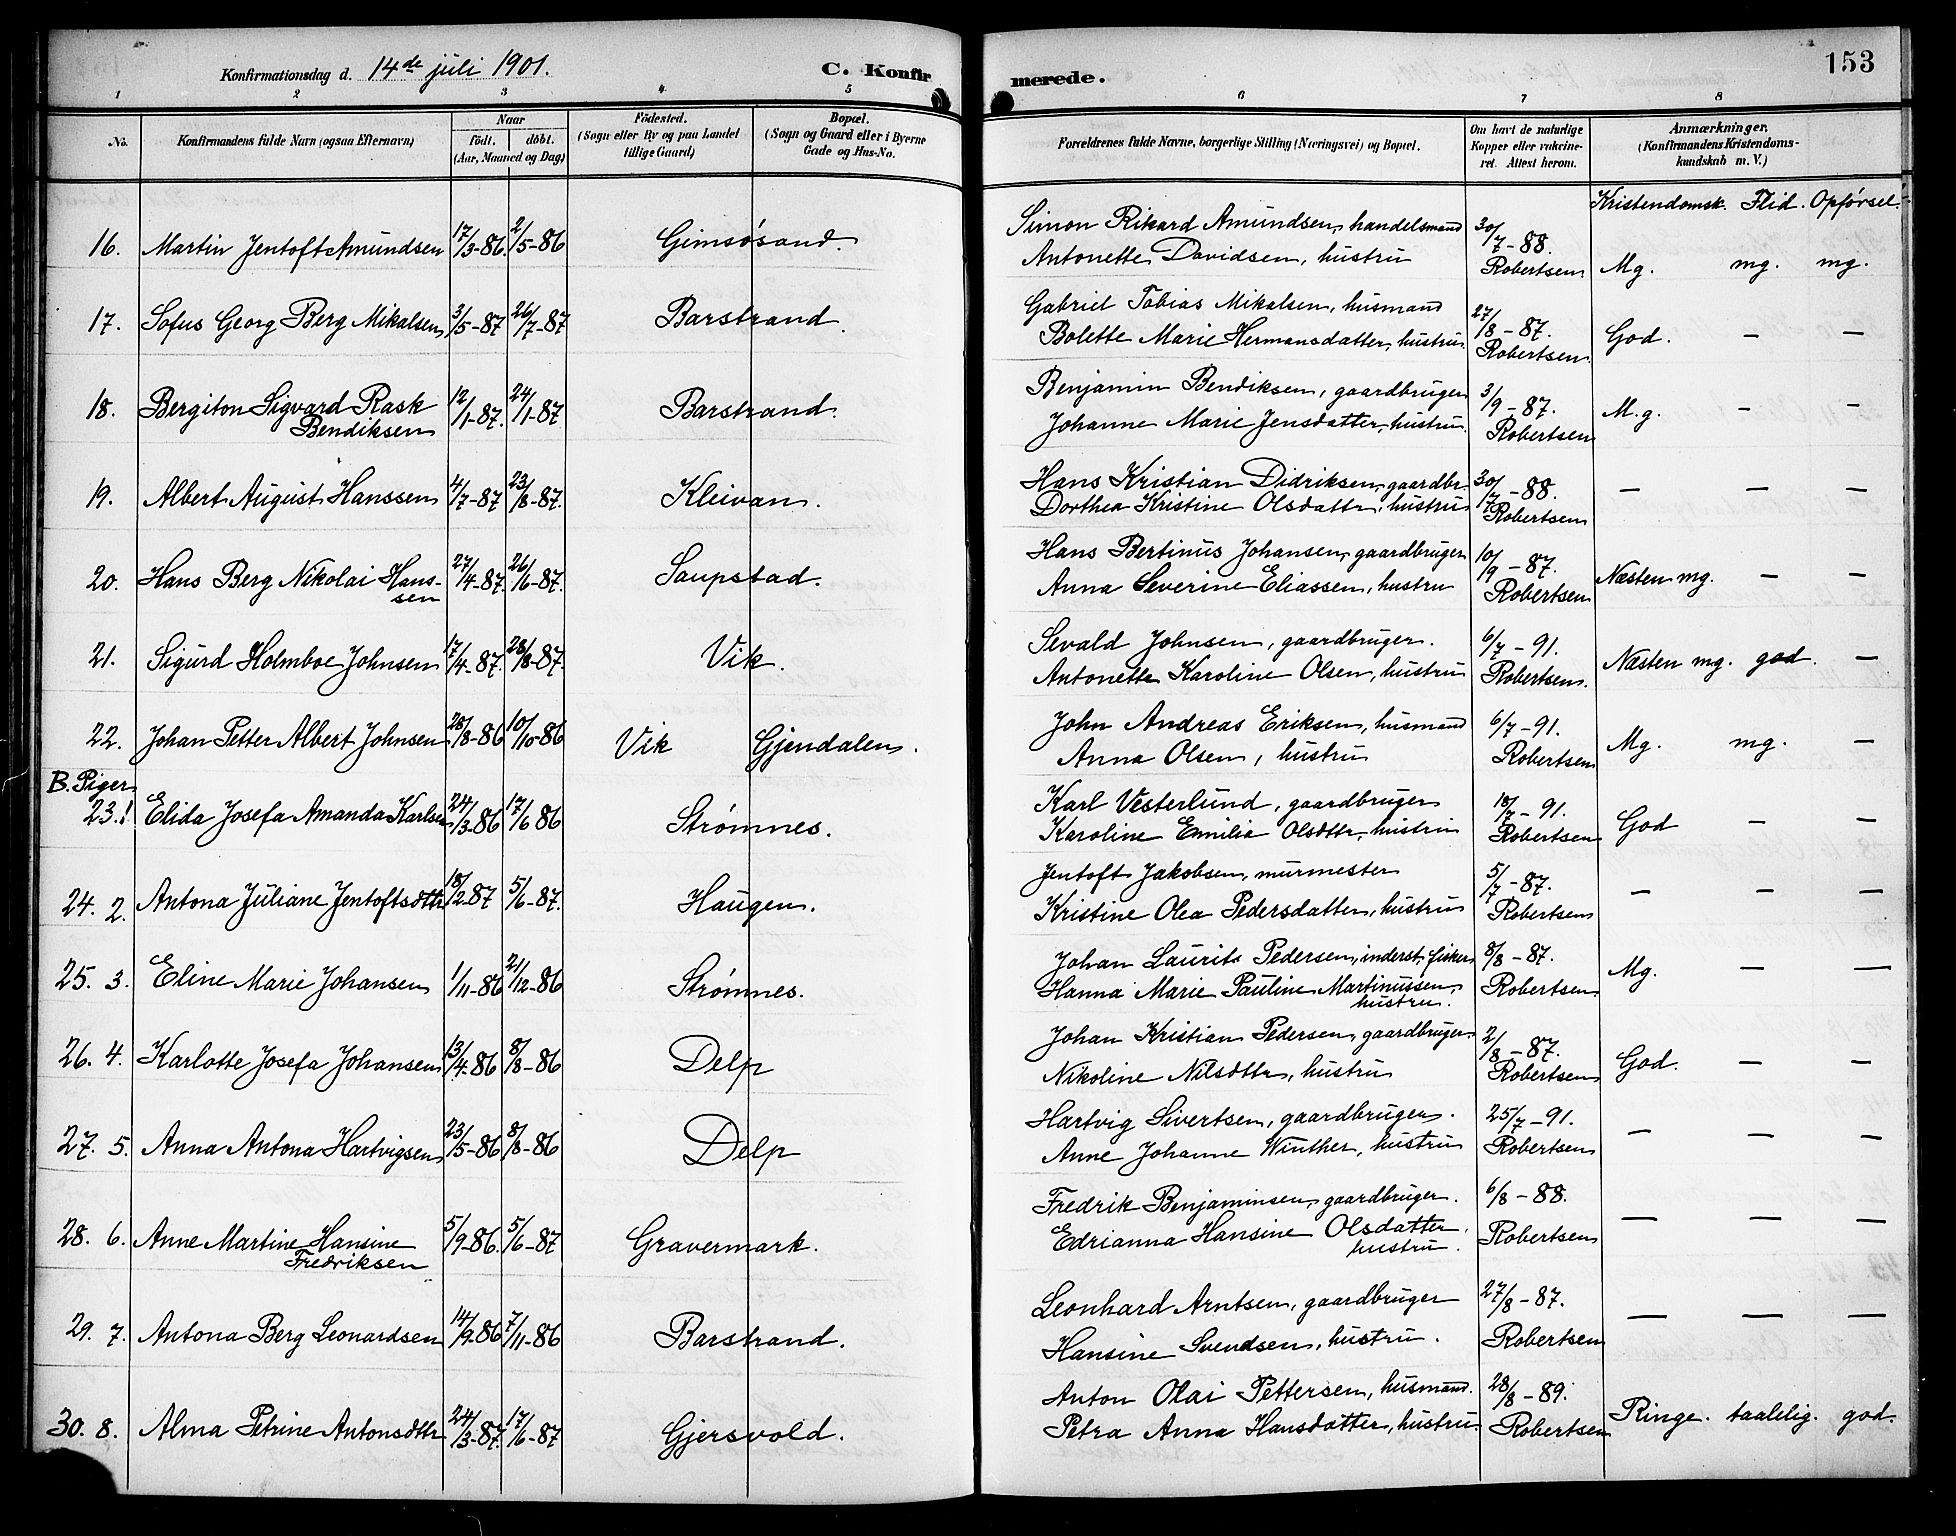 Konfirmationsdag d. 14de juli 1901. C. Konfirmerede. 153
1 2 3 4 5 6 7 8
No. Konfirmandens fulde Navn (ogsaa Efternavn) Naar födt. döbt. (Aar, Maaned og Dag) Födested. (Sogn eller By og paa Landet tillige Gaard) Bopæl. (Sogn og Gaard eller i Byerne Gade og Hus-No. Forældrenes fulde Navne, borgerlige Stilling (Næringsvei) og Bopæl. Om havt de naturlige Kopper eller vakcineret. Attest herom. Anmærkninger. (Konfirmandens Kristendomskundskab m. V.)
Kristendomsk. Flid. Opførsel.
16. Martin Jentoft Amundsen 17/3-86. 2/5-86 Gimsøsand. Simon Rikard Amundsen, handelsmand 30/7-88.
Antonette Davidsen, hustru Robertsen Mg. mg. mg.
17. Sofus Georg Berg Mikalsen 3/5-87 26/7-87 Barstrand. Gabriel Tobias Mikalsen, husmand 27/8-87.
Bolette Marie Hermansdatter, hustru. Robertsen. God. — —
18. Bergiton Sigvard Rask 12/1-87. 24/1-87 Barstrand. Benjamin Bendiksen, gaardbruger 3/9-87.
Bendiksen Johanne Marie Jensdatter, hustru. Robertsen M.g. — —
19. Albert August Hanssen 4/7-87 23/8-87. Kleivan. Hans Kristian Didriksen, gaardbr. 30/7-88.
Dorthea Kristine Olsdattr, hustru Robertsen — — —
20. Hans Berg Nikolai Hans- 27/4-87. 26/6-87. Saupstad. Hans Bertinus Johansen, gaardbruger 10/9-87.
sen Anna Severine Eliassen, hustru Robertsen Næsten mg. — —
21. Sigurd Holmboe Johnsen 17/4-87. 28/8-87. Vik. Sevald Johnsen, gaardbruger. 6/7-91.
Antonette Karoline Olsen, hustru Robertsen. Næsten mg. god. —
22. Johan Petter Albert Johnsen 28/8-86 10/10-86 Vik Gjendalen. John Andreas Eriksen, husmand 6/7-91.
Anna Olsen, hustru Robertsen Mg. mg. —
B. Piger
23. 1 Elida Josefa Amanda Karlsen 24/3-86 17/6 86 Strømnes. Karl Vesterlund, gaardbruger 18/7-91.
Karoline Emilie Olsdttr, hustru Robertsen God — —
24. 2. Antona Juliane Jentoftsdttr 18/2-87 5/6-87. Haugen. Jentoft Jakobsen, murmester 5/7-87.
Kristine Olea Pedersdatter, hustru Robertsen — — —
25. 3. Eline Marie Johansen 1/11-86 21/12-86 Strømnes. Johan Laurits Pedersen, inderst, fisker 8/8-87.
Hanna Marie Pauline Martinussen, Robertsen. Mg. — —
hustru.
26. 4. Karlotte Josefa Johansen 13/4-86 8/8-86 Delp Johan Kristian Pedersen, gaardbruger. 2/8-87.
Nikoline Nilsdttr, hustru Robertsen God. — —
27. 5. Anna Antona Hartvigsen 23/5-86 8/8-86 Delp Hartvig Sivertsen, gaardbruger. 25/7-91.
Anne Johanne Winther, hustru Robertsen — — —
28. 6. Anne Martine Hansine 5/9-86. 5/6-87 Gravermark. Fredrik Benjaminsen, gaardbruger. 6/8-88.
Fredriksen Edrianna Hansine Olsdatter, Robertsen — — —
hustru.
29. 7. Antona Berg Leonardsen 14/9-86 7/11-86 Barstrand. Leonhard Arntsen, gaardbruger 27/8-87.
Hansine Svendsen, hustru. Robertsen — — —
30. 8. Alma Petrine Antonsdttr 24/3-87. 17/6-87 Gjersvold. Anton Olai Pettersen, husmand. 28/8-89.
Petra Anna Hansdatter, hustru. Robertsen Ringe. taalelig. god.